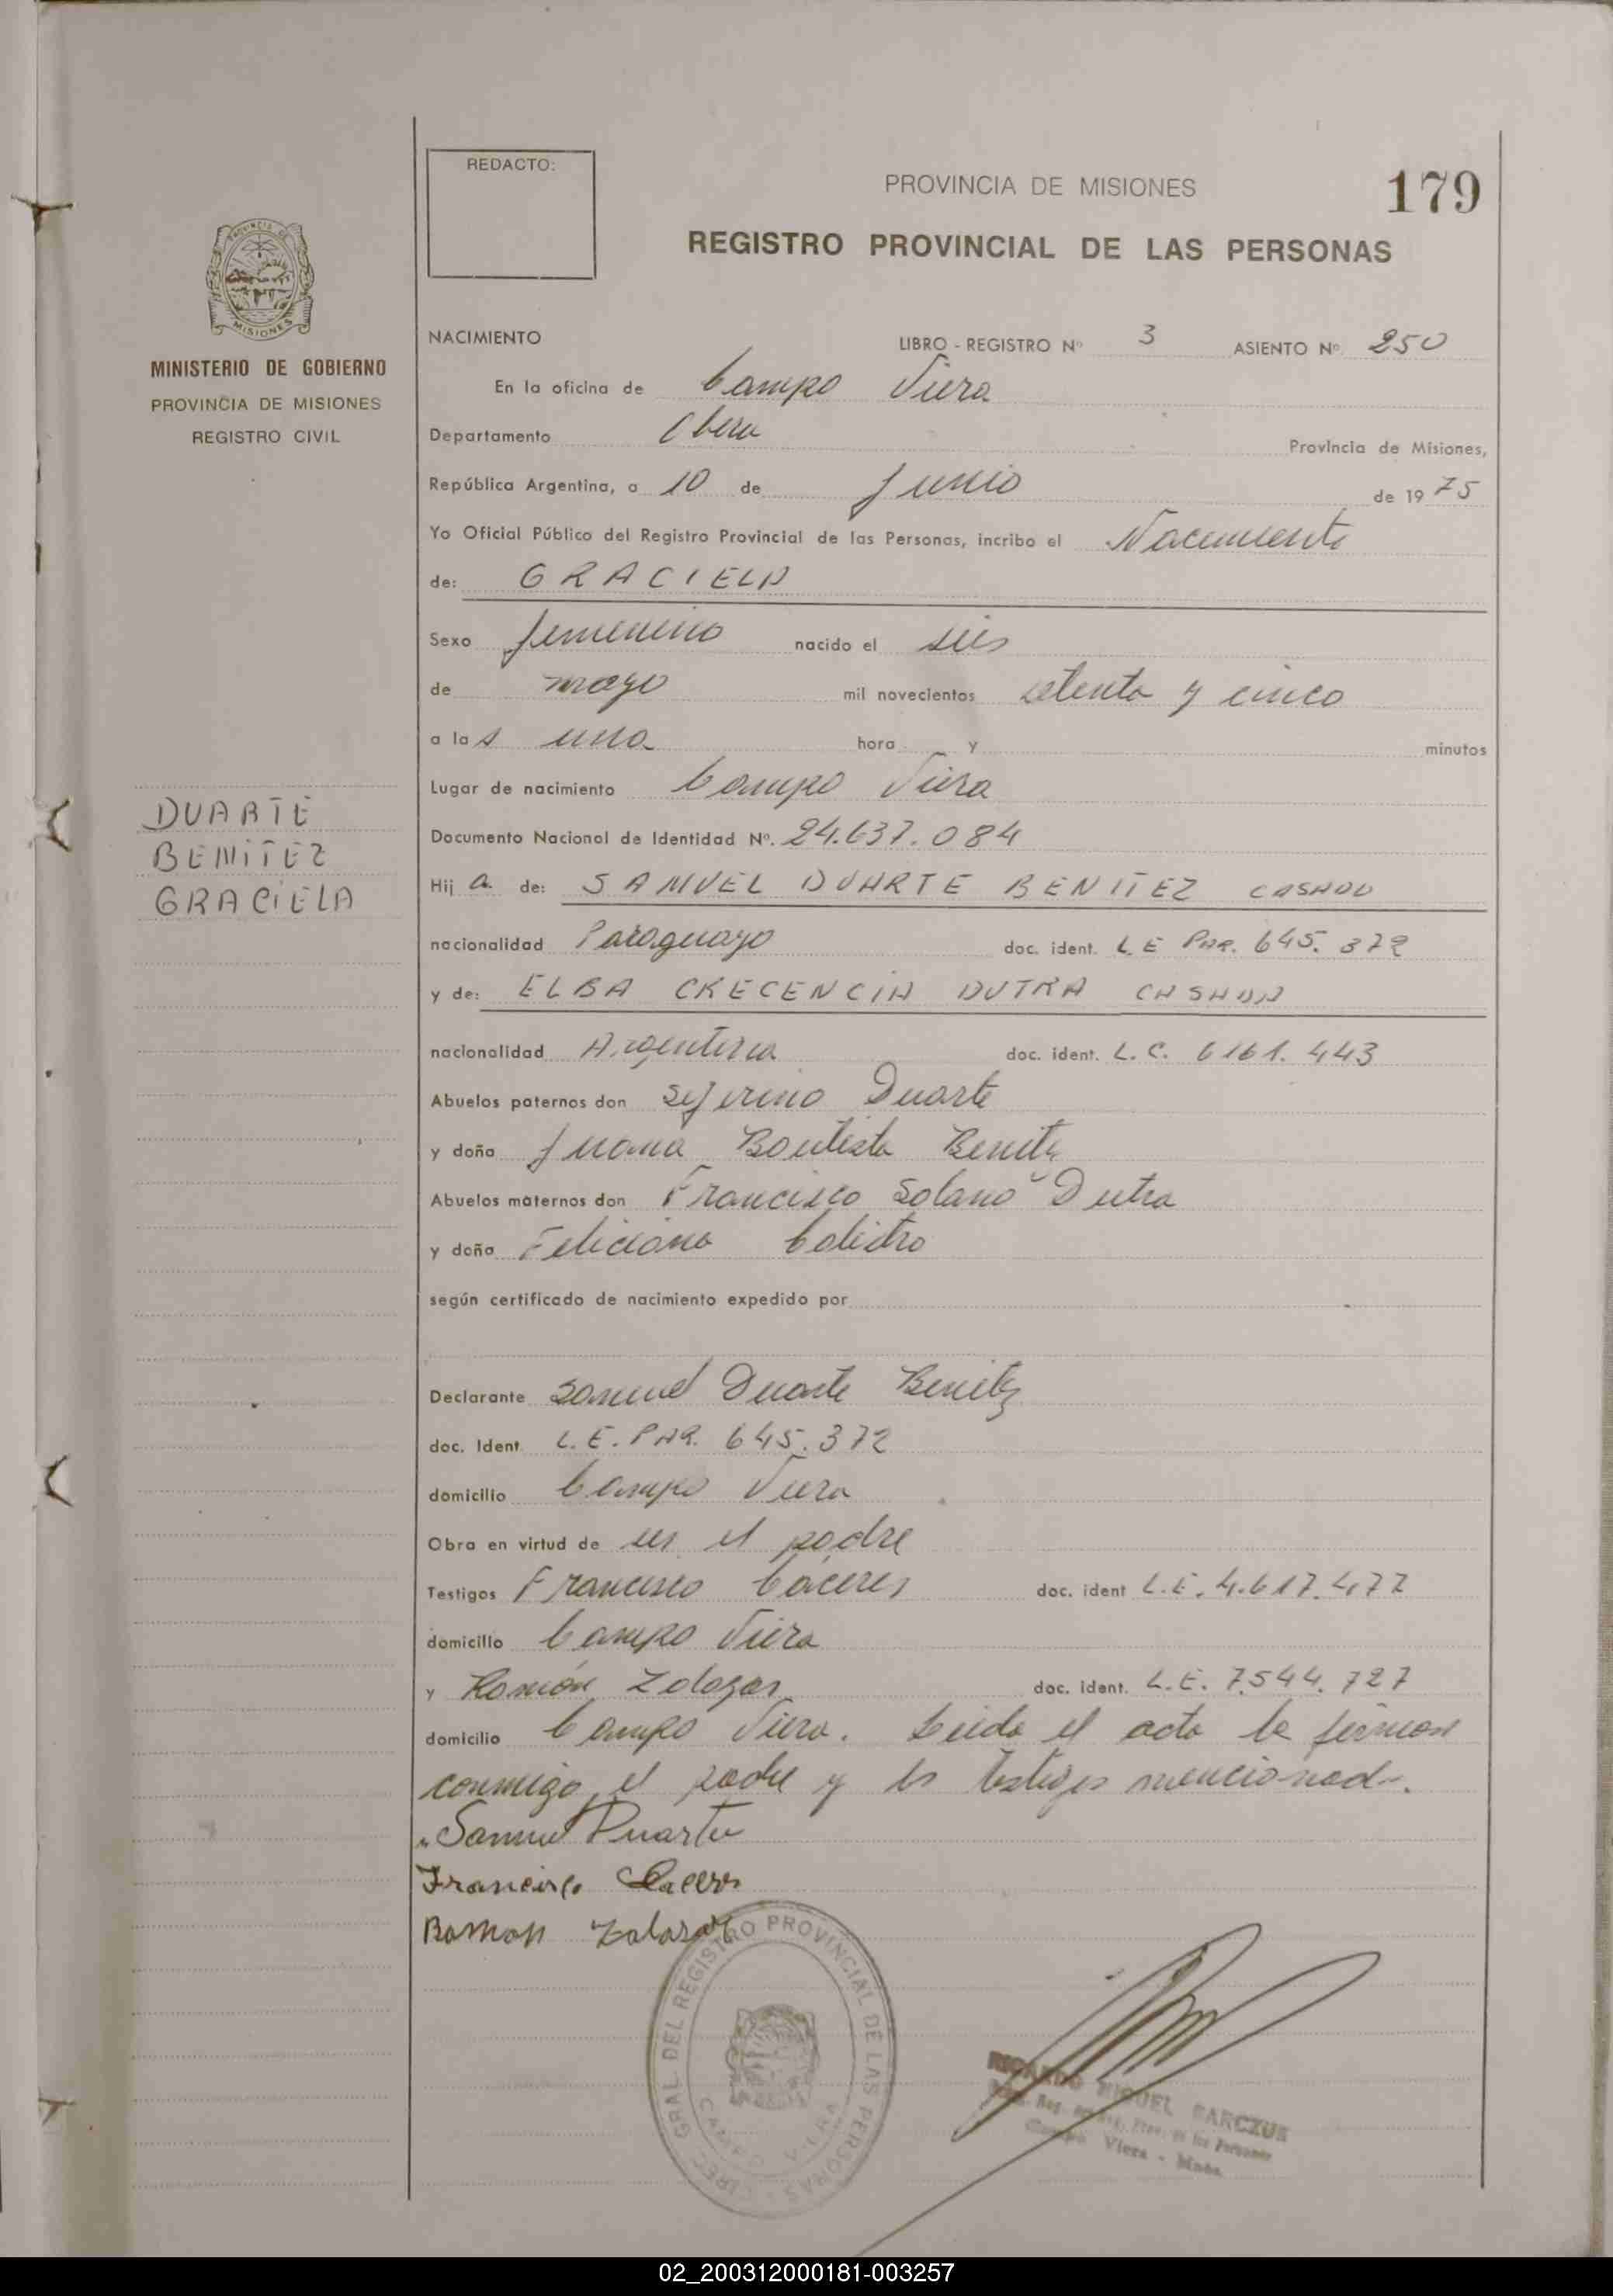 REDACTO:
PROVINCIA DE MISIONES
179
REGISTRO PROVINCIAL DE LAS PERSONAS
MISIONES
MINISTERIO DE GOBIERNO
PROVINCIA DE MISIONES
REGISTRO CIVIL
NACIMIENTO LIBRO - REGISTRO Nº 3 ASIENTO Nº 250
En la oficina de Campo Viera
Departamento Obera Provincia de Misiones,
República Argentina, a 10 de Junio de 1975
Yo Oficial Público del Registro Provincial de las Personas, incribo el Nacimiento
de: GRACIELA
Sexo femenino nacido el seis
de mayo mil novecientos setenta y cinco
a las una hora y minutos
Lugar de nacimiento Campo Viera
Documento Nacional de Identidad Nº. 24.637.084
DUARTE
BENITEZ
GRACIELA
Hija de: SAMUEL DUARTE BENITEZ CASADO
nacionalidad Paraguayo doc. ident. LE PAR. 645.372
y de: ELBA CRECENCIA DUTRA CASADA
nacionalidad Argentina doc. ident. L.C. 6161.443
Abuelos paternos don Seferino Duarte
y doña Juana Bautista Benitez
Abuelos maternos don Francisco Solano Dutra
y doña Feliciana Calistro
según certificado de nacimiento expedido por
Declarante Samuel Duarte Benitez
doc. Ident L.E. PAR. 645.372
domicilio Campo Viera
Obra en virtud de ser el padre
Testigos Francisco Cáceres doc. ident L.E. 4.617.477
domicilio Campo Viera
y Ramón Zalazar doc. ident. L.E. 7.544.727
domicilio Campo Viera. Leida el acta la firman
conmigo, el padre y los testigos mencionados.
Samuel Duarte
Francisco Caceres
Ramon Zalazar
DIREC. GRAL. DEL REGISTRO PROVINCIAL DE LAS PERSONAS
CAMPO VIERA
RICARDO MIGUEL SARCZUK
de las Personas
Campo Viera - Mnes.
02_200312000181-003257